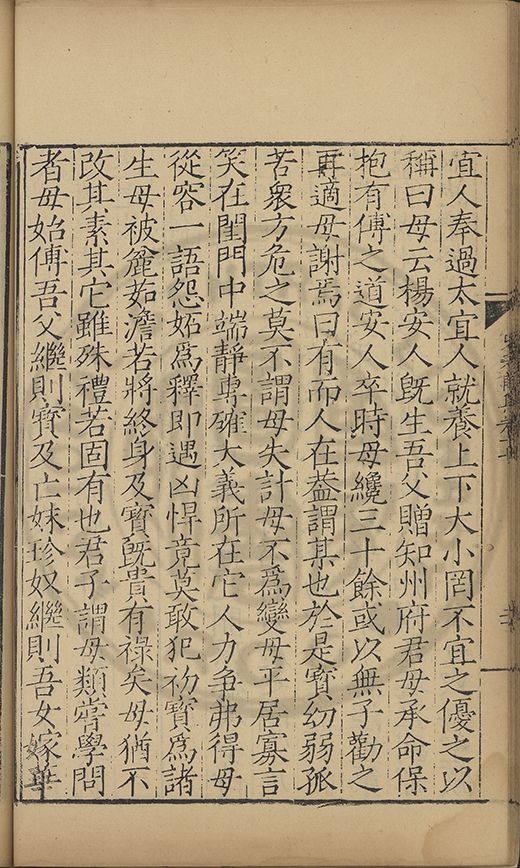 宜人奉過太宜人就養上下大小罔不宜之優之以
稱曰母云楊安人旣生吾父贈知州府君母承命保
抱有傅之道安人卒時母纔三十餘或以無子勸之
再適母謝焉曰有而人在葢謂某也於是寳幼弱孤
苦衆方危之莫不謂母失計母不爲變母平居寡言
笑在閨門中端靜專確大義所在它人力争弗得母
從容一語怨妬爲釋即遇凶悍竟莫敢犯初寳爲諸
生母被麄茹澹若將終身及寳旣貴有祿矣母猶不
改其素其它雖殊禮若固有也君子謂母類甞學問
者母始傅吾父繼則寳及亡妹珍奴繼則吾女嫁華